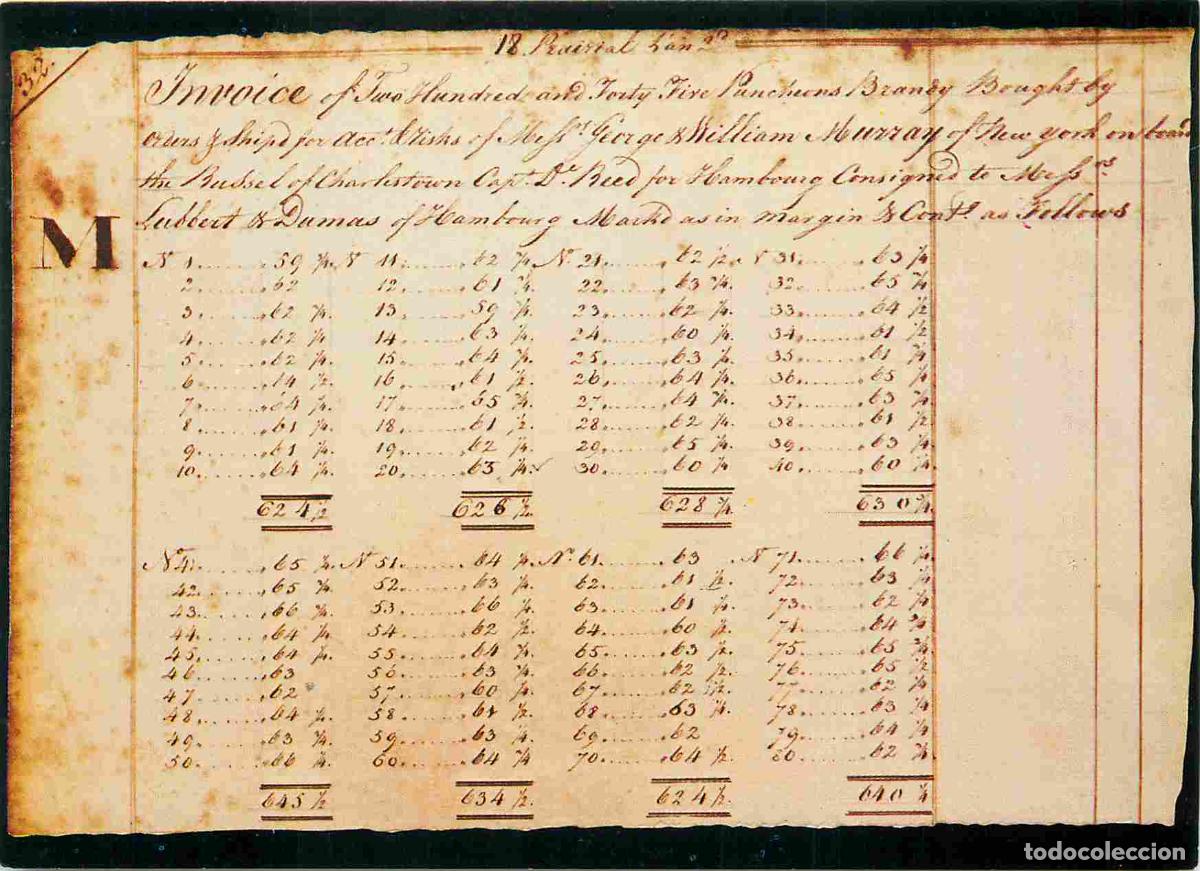 32.
18 Prairial L'an 2d
Invoice of Two Hundred and Forty Five Puncheons Brandy Bought by
orders & Ship'd for Acct. & Risks of Messrs. George & William Murray of New york on board
the Russel of Charlestown Capt. Dr. Reed for Hambourg Consigned to Messrs.
Lubbert & Dumas of Hambourg Markd as in margin & Contg. as Follows
M
No. 1 59 No. 11 62 No. 21 62 ½ No. 31 63
2 62 12 61 22 63 32 65
3 62 13 59 23 62 33 64 ½
4 62 14 63 24 60 34 61 ½
5 62 15 64 25 63 35 61
6 ½ 16 61 ½ 26 64 36 65
7 64 17 65 27 64 37 63
8 61 18 61 ½ 28 62 38 61 ½
9 61 19 62 29 65 39 63
10 64 20 63 30 60 40 60
624 ½ 626 ½ 628 ¾ 630
No. 41 65 No. 51 64 No. 61 63 No. 71 66
42 65 52 63 62 61 ½ 72 63
43 66 53 66 63 61 73 62
44 64 54 62 ½ 64 60 ½ 74 64 ¾
45 64 55 64 65 63 ½ 75 65
46 63 56 63 66 62 ½ 76 65 ½
47 62 57 60 67 62 ½ 77 62
48 64 58 61 ½ 68 63 78 63
49 63 59 63 69 62 79 64
50 66 60 64 70 64 ½ 80 62
645 ½ 634 ½ 624 ½ 640
todocoleccion